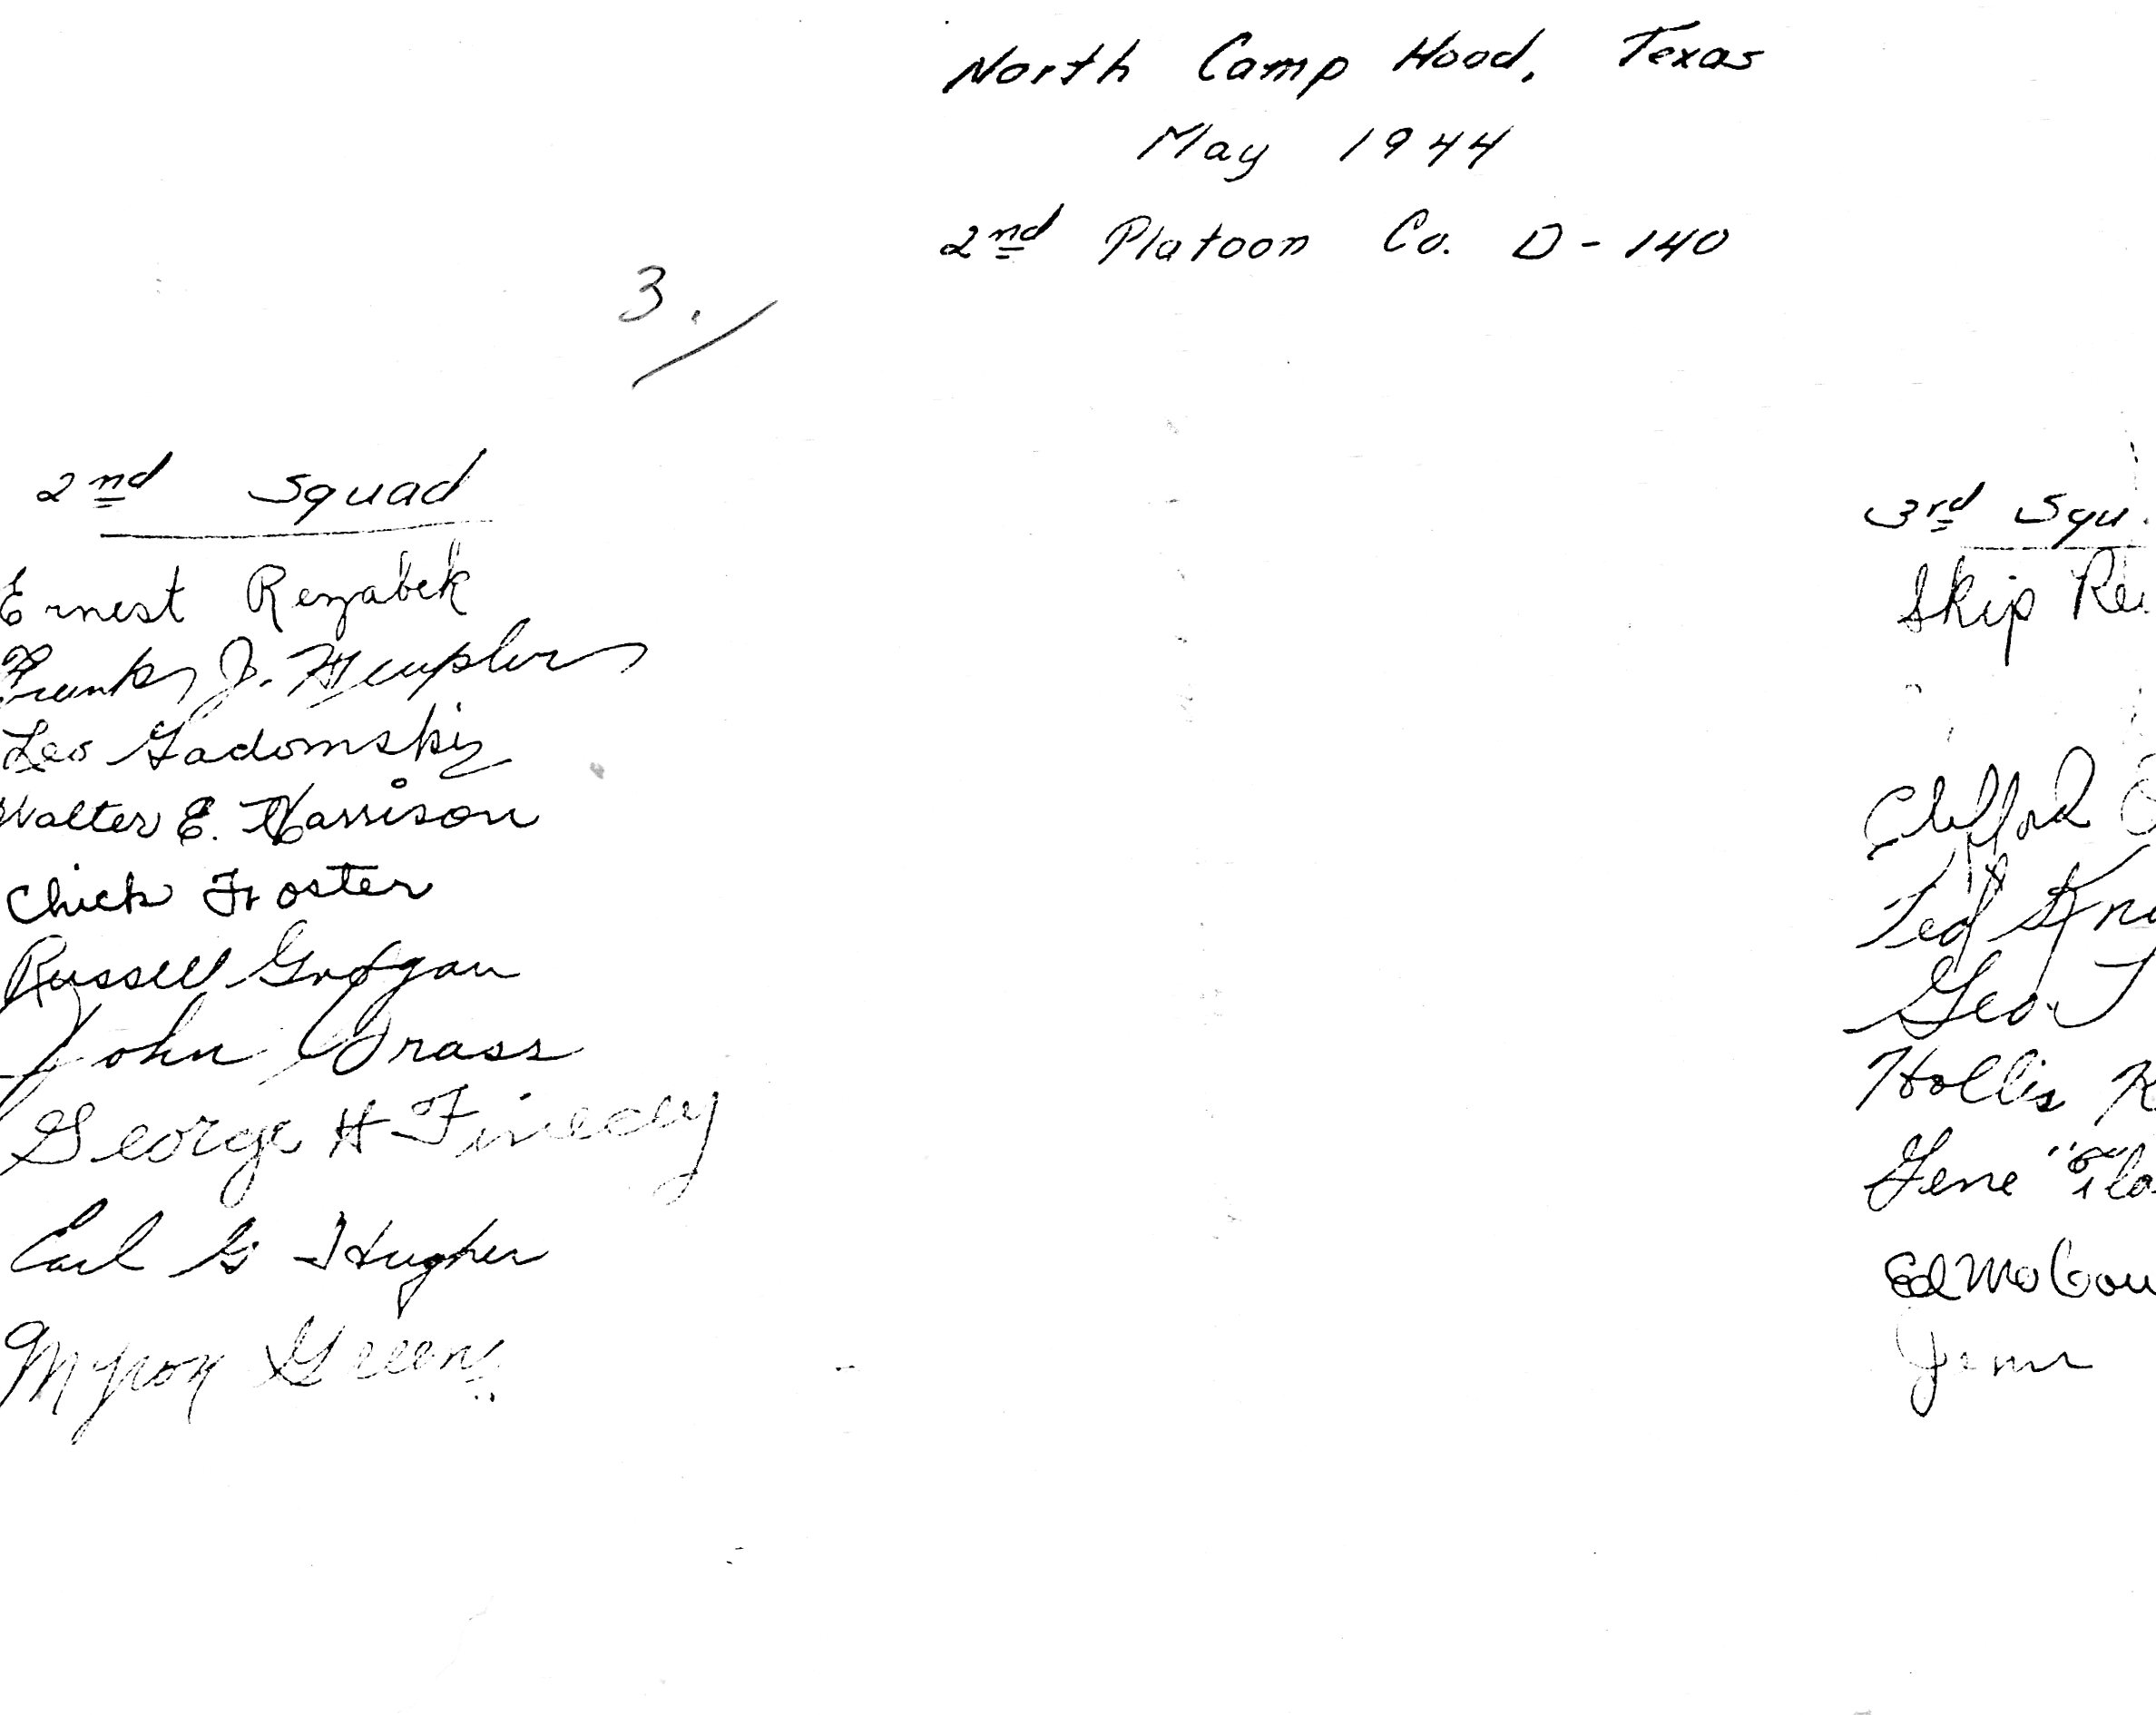 North Camp Hood, Texas
May 1944
2nd Platoon Co. D-140
3.
2nd Squad
Ernest Rezabek
J.
Leo Gadomski
Walter E. Harrison
Chick Foster
Russell Grogan
John Grass
George H
Earl G Hughes
Myron Green
3rd Squ
Skip Re
Clifford
Ted
Geo
Hollis
Gene
Ed